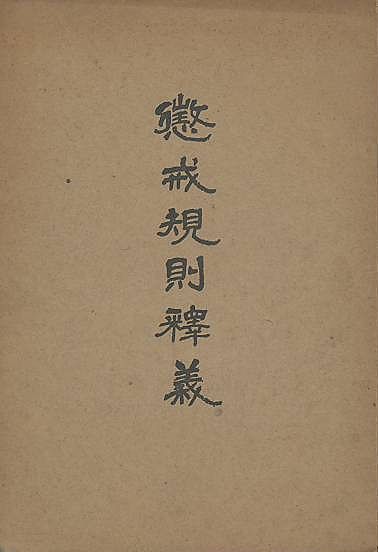 懲戒規則釋義